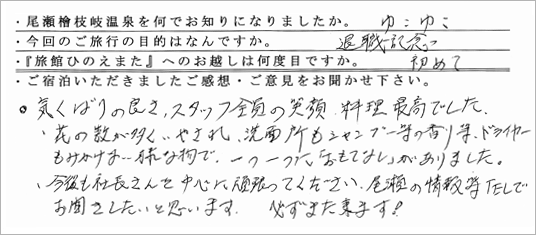 ・尾瀬檜枝岐温泉を何でお知りになりましたか。 ゆこゆこ
・今回のご旅行の目的はなんですか。 退職記念に
・『旅館ひのえまた』へのお越しは何度目ですか。 初めて
・ご宿泊いただきましたご感想・ご意見をお聞かせ下さい。
○気くばりの良さ、スタッフ全員の笑顔 料理 最高でした。
、花の数が多く、いやされ、洗面所もシャンプー等の香り等、ドライヤー
もみかけは な物で、一つ一つに「おもてなし」がありました。
、今後も社長さんを中心に頑張ってください、尾瀬の情報等TELで
お聞きしたいと思います。 必ずまた来ます!